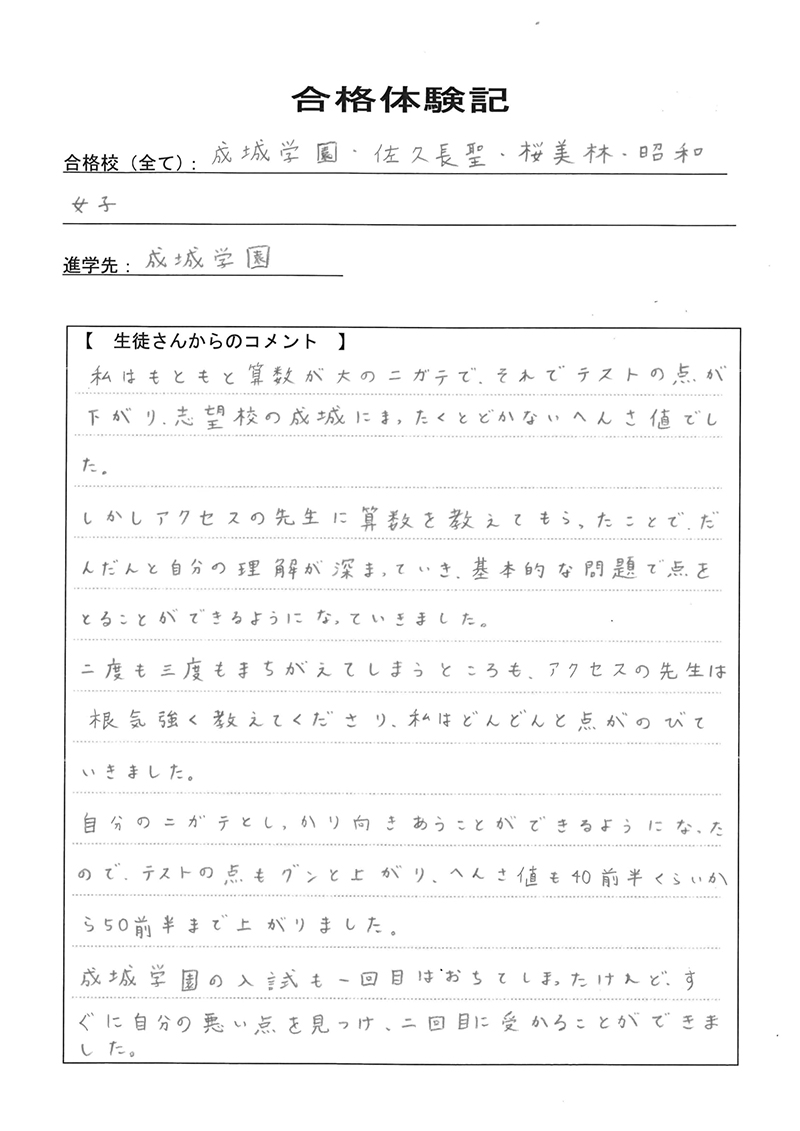 合格体験記
合格校（全て）：成城学園・佐久長聖・桜美林・昭和
女子
進学先：成城学園
【　生徒さんからのコメント　】
私はもともと算数が大のニガテで、それでテストの点が
下がり、志望校の成城にまったくとどかないへんさ値でし
た。
しかしアクセスの先生に算数を教えてもらったことで、だ
んだんと自分の理解が深まっていき、基本的な問題で点を
とることができるようになっていきました。
二度も三度もまちがえてしまうところも、アクセスの先生は
根気強く教えてくださり、私はどんどんと点がのびて
いきました。
自分のニガテとしっかり向きあうことができるようになった
ので、テストの点もグンと上がり、へんさ値も40前半くらいか
ら50前半まで上がりました。
成城学園の入試も一回目はおちてしまったけれど、す
ぐに自分の悪い点を見つけ、二回目に受かることができま
した。